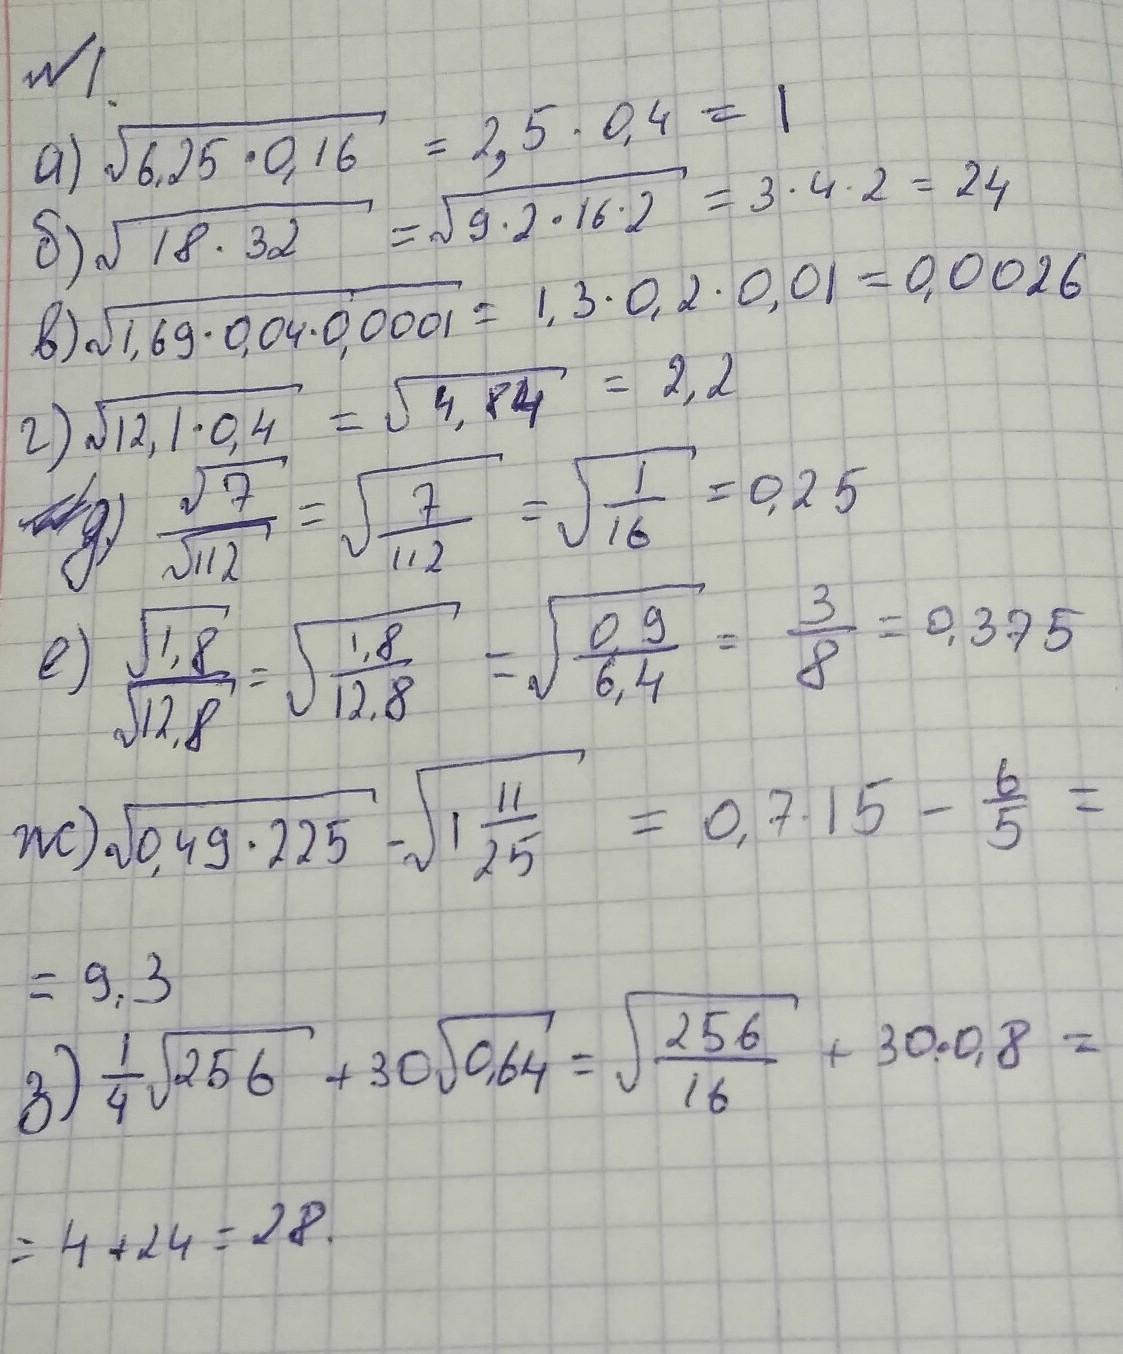 №1.
а) √6,25·0,16 = 2,5·0,4 = 1
б) √18·32 = √9·2·16·2 = 3·4·2 = 24
в) √1,69·0,04·0,0001 = 1,3·0,2·0,01 = 0,0026
г) √12,1·0,4 = √4,84 = 2,2
д) √7/√112 = √7/112 = √1/16 = 0,25
е) √1,8/√12,8 = √1,8/12,8 = √0,9/6,4 = 3/8 = 0,375
ж) √0,49·225 - √1 11/25 = 0,7·15 - 6/5 =
= 9,3
з) 1/4√256 + 30√0,64 = √256/16 + 30·0,8 =
= 4+24 = 28.